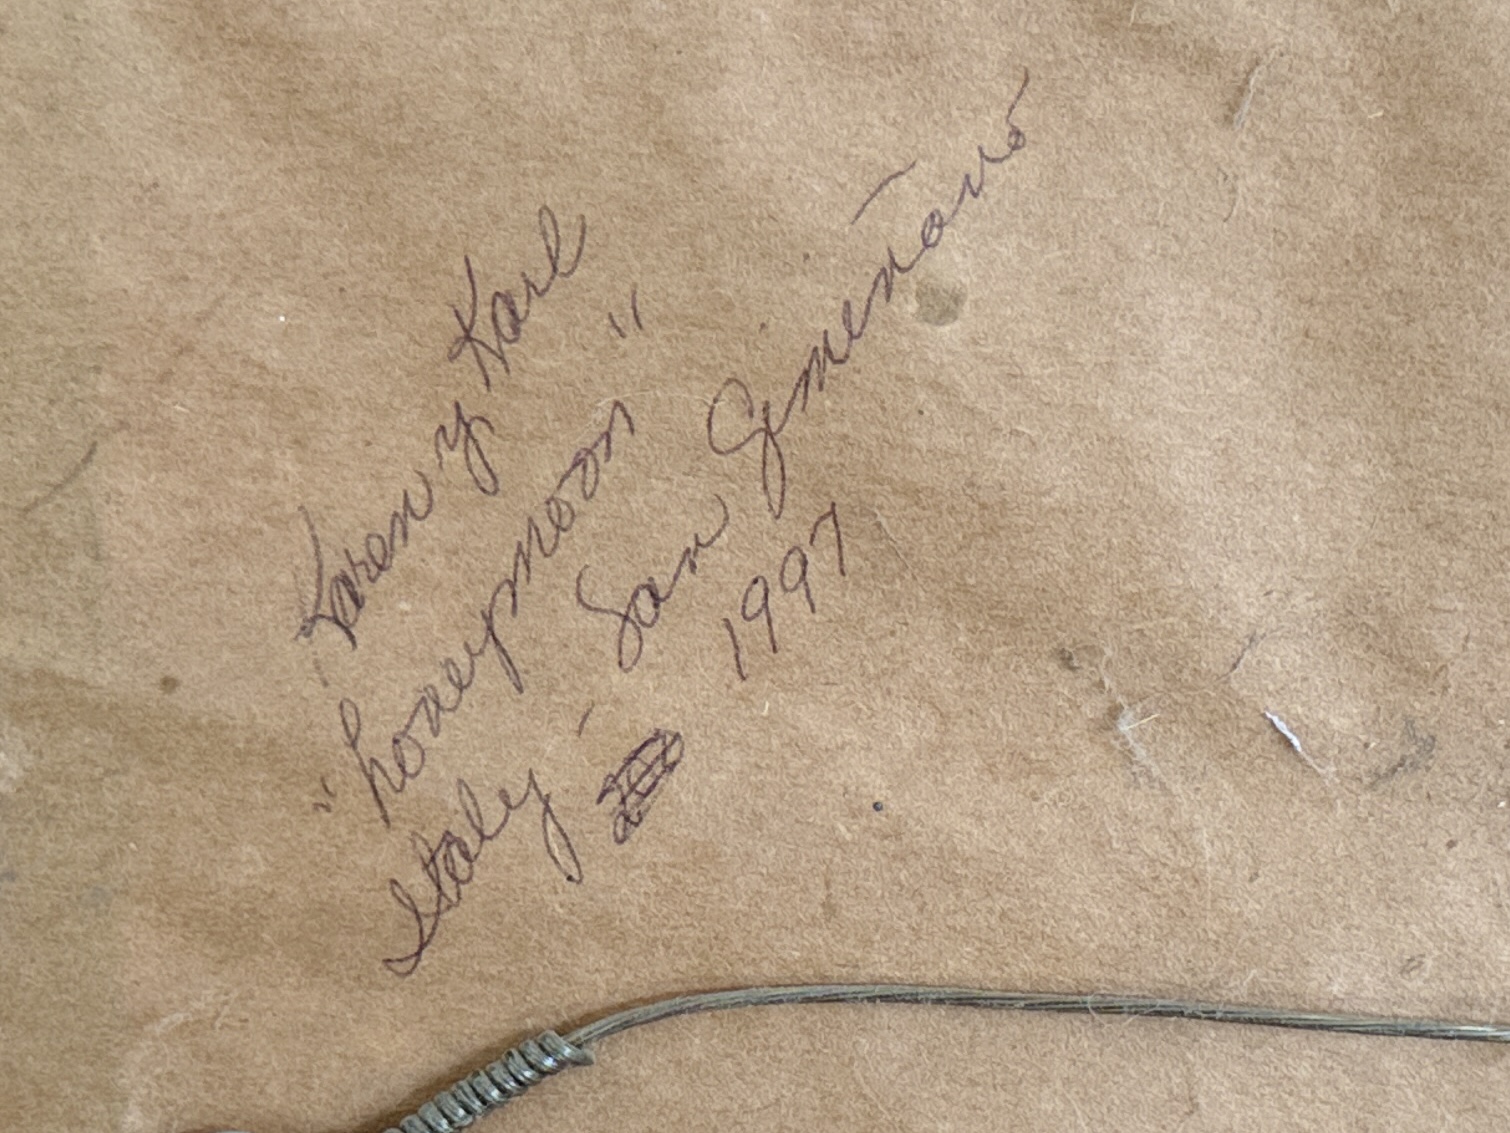 Karen y Karl
"honeymoon"
Staly - San Gimenano
1997